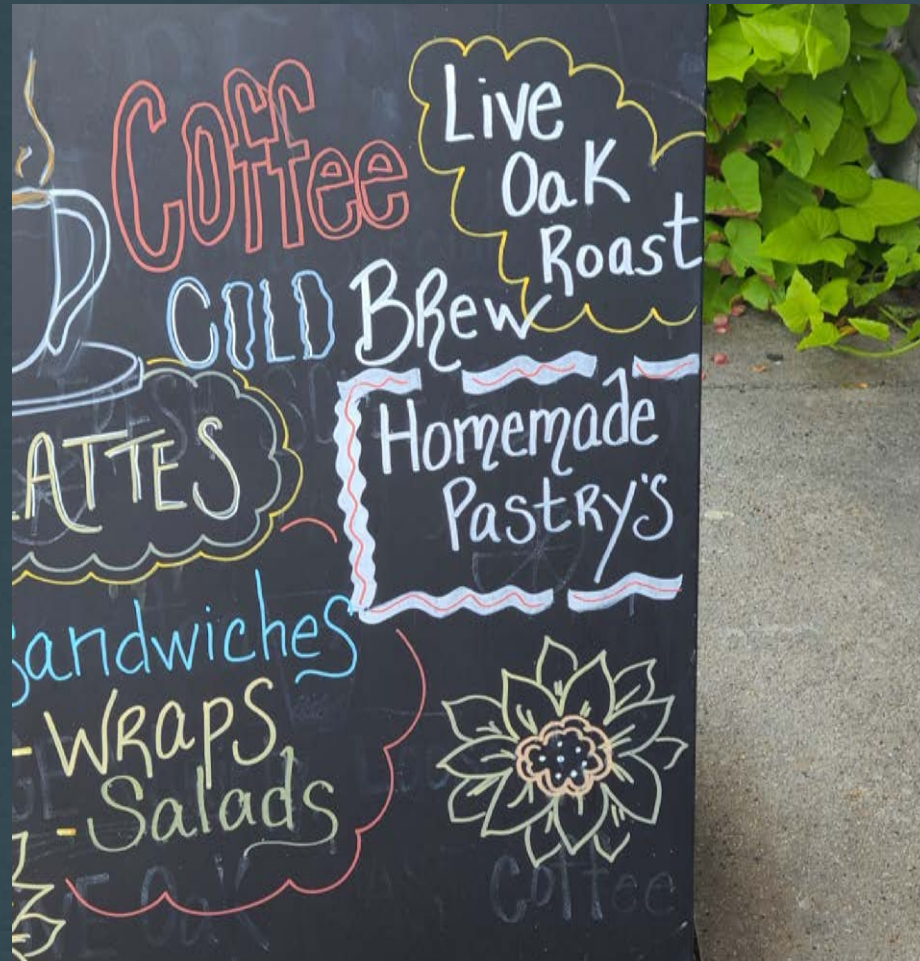 Coffee
Live
Oak
Roast
COLD Brew
LATTES
Homemade
Pastry's
Sandwiches
- Wraps
- Salads
Coffee